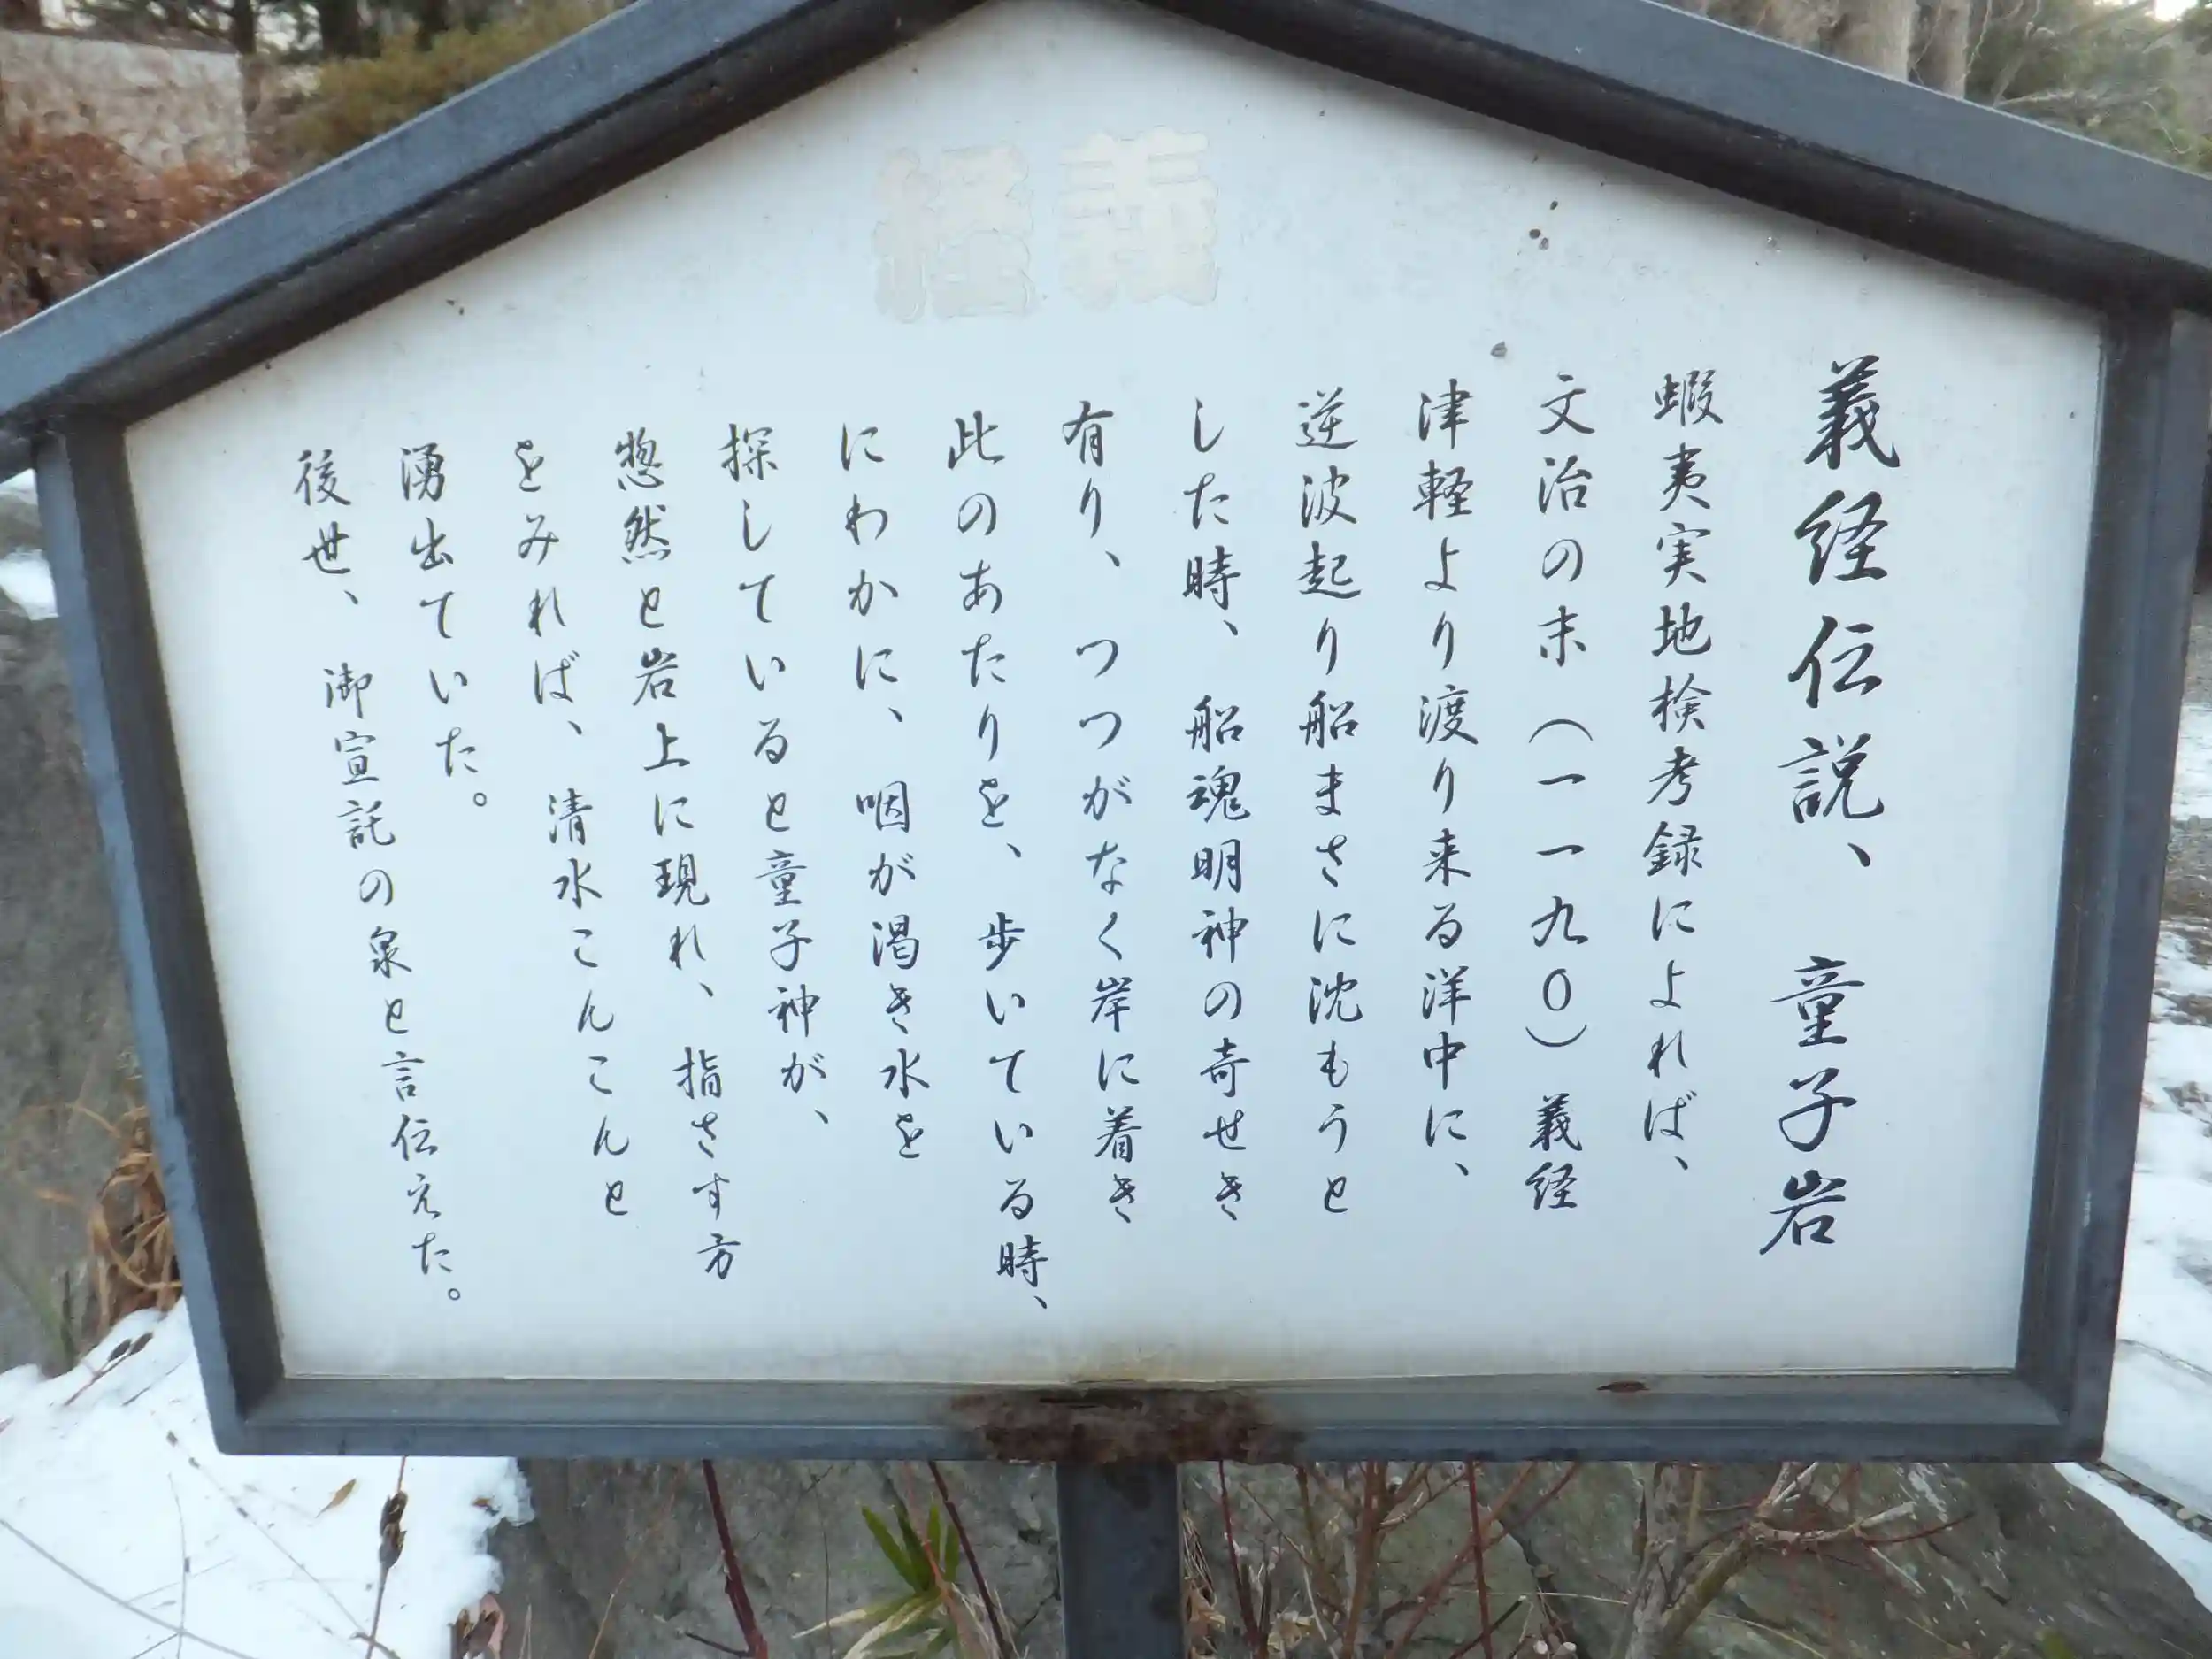 義経
義経伝説、 童子岩
蝦夷実地検考録によれば、
文治の末(一一九〇)義経
津軽より渡り来る洋中に、
逆波起り船まさに沈もうと
した時、船魂明神の奇せき
有り、つつがなく岸に着き
此のあたりを、歩いている時、
にわかに、咽が渇き水を
探していると童子神が、
惣然と岩上に現れ、指さす方
をみれば、清水こんこんと
湧出ていた。
後世、御宣託の泉と言伝えた。